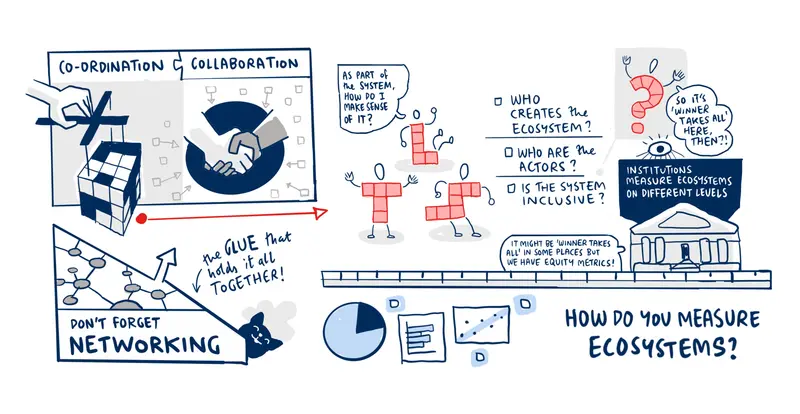 CO-ORDINATION
COLLABORATION
the GLUE that
holds it all
TOGETHER!
DON'T FORGET
NETWORKING
AS PART OF
THE SYSTEM,
HOW DO I
MAKE SENSE
OF IT?
WHO
CREATES the
ECOSYSTEM?
WHO ARE the
ACTORS?
IS THE SYSTEM
INCLUSIVE?
SO IT'S
'WINNER
TAKES ALL'
HERE,
THEN?!
INSTITUTIONS
MEASURE ECOSYSTEMS
ON DIFFERENT LEVELS
IT MIGHT BE 'WINNER TAKES
ALL' IN SOME PLACES BUT
WE HAVE EQUITY METRICS!
D
D
D
HOW DO YOU MEASURE
ECOSYSTEMS?